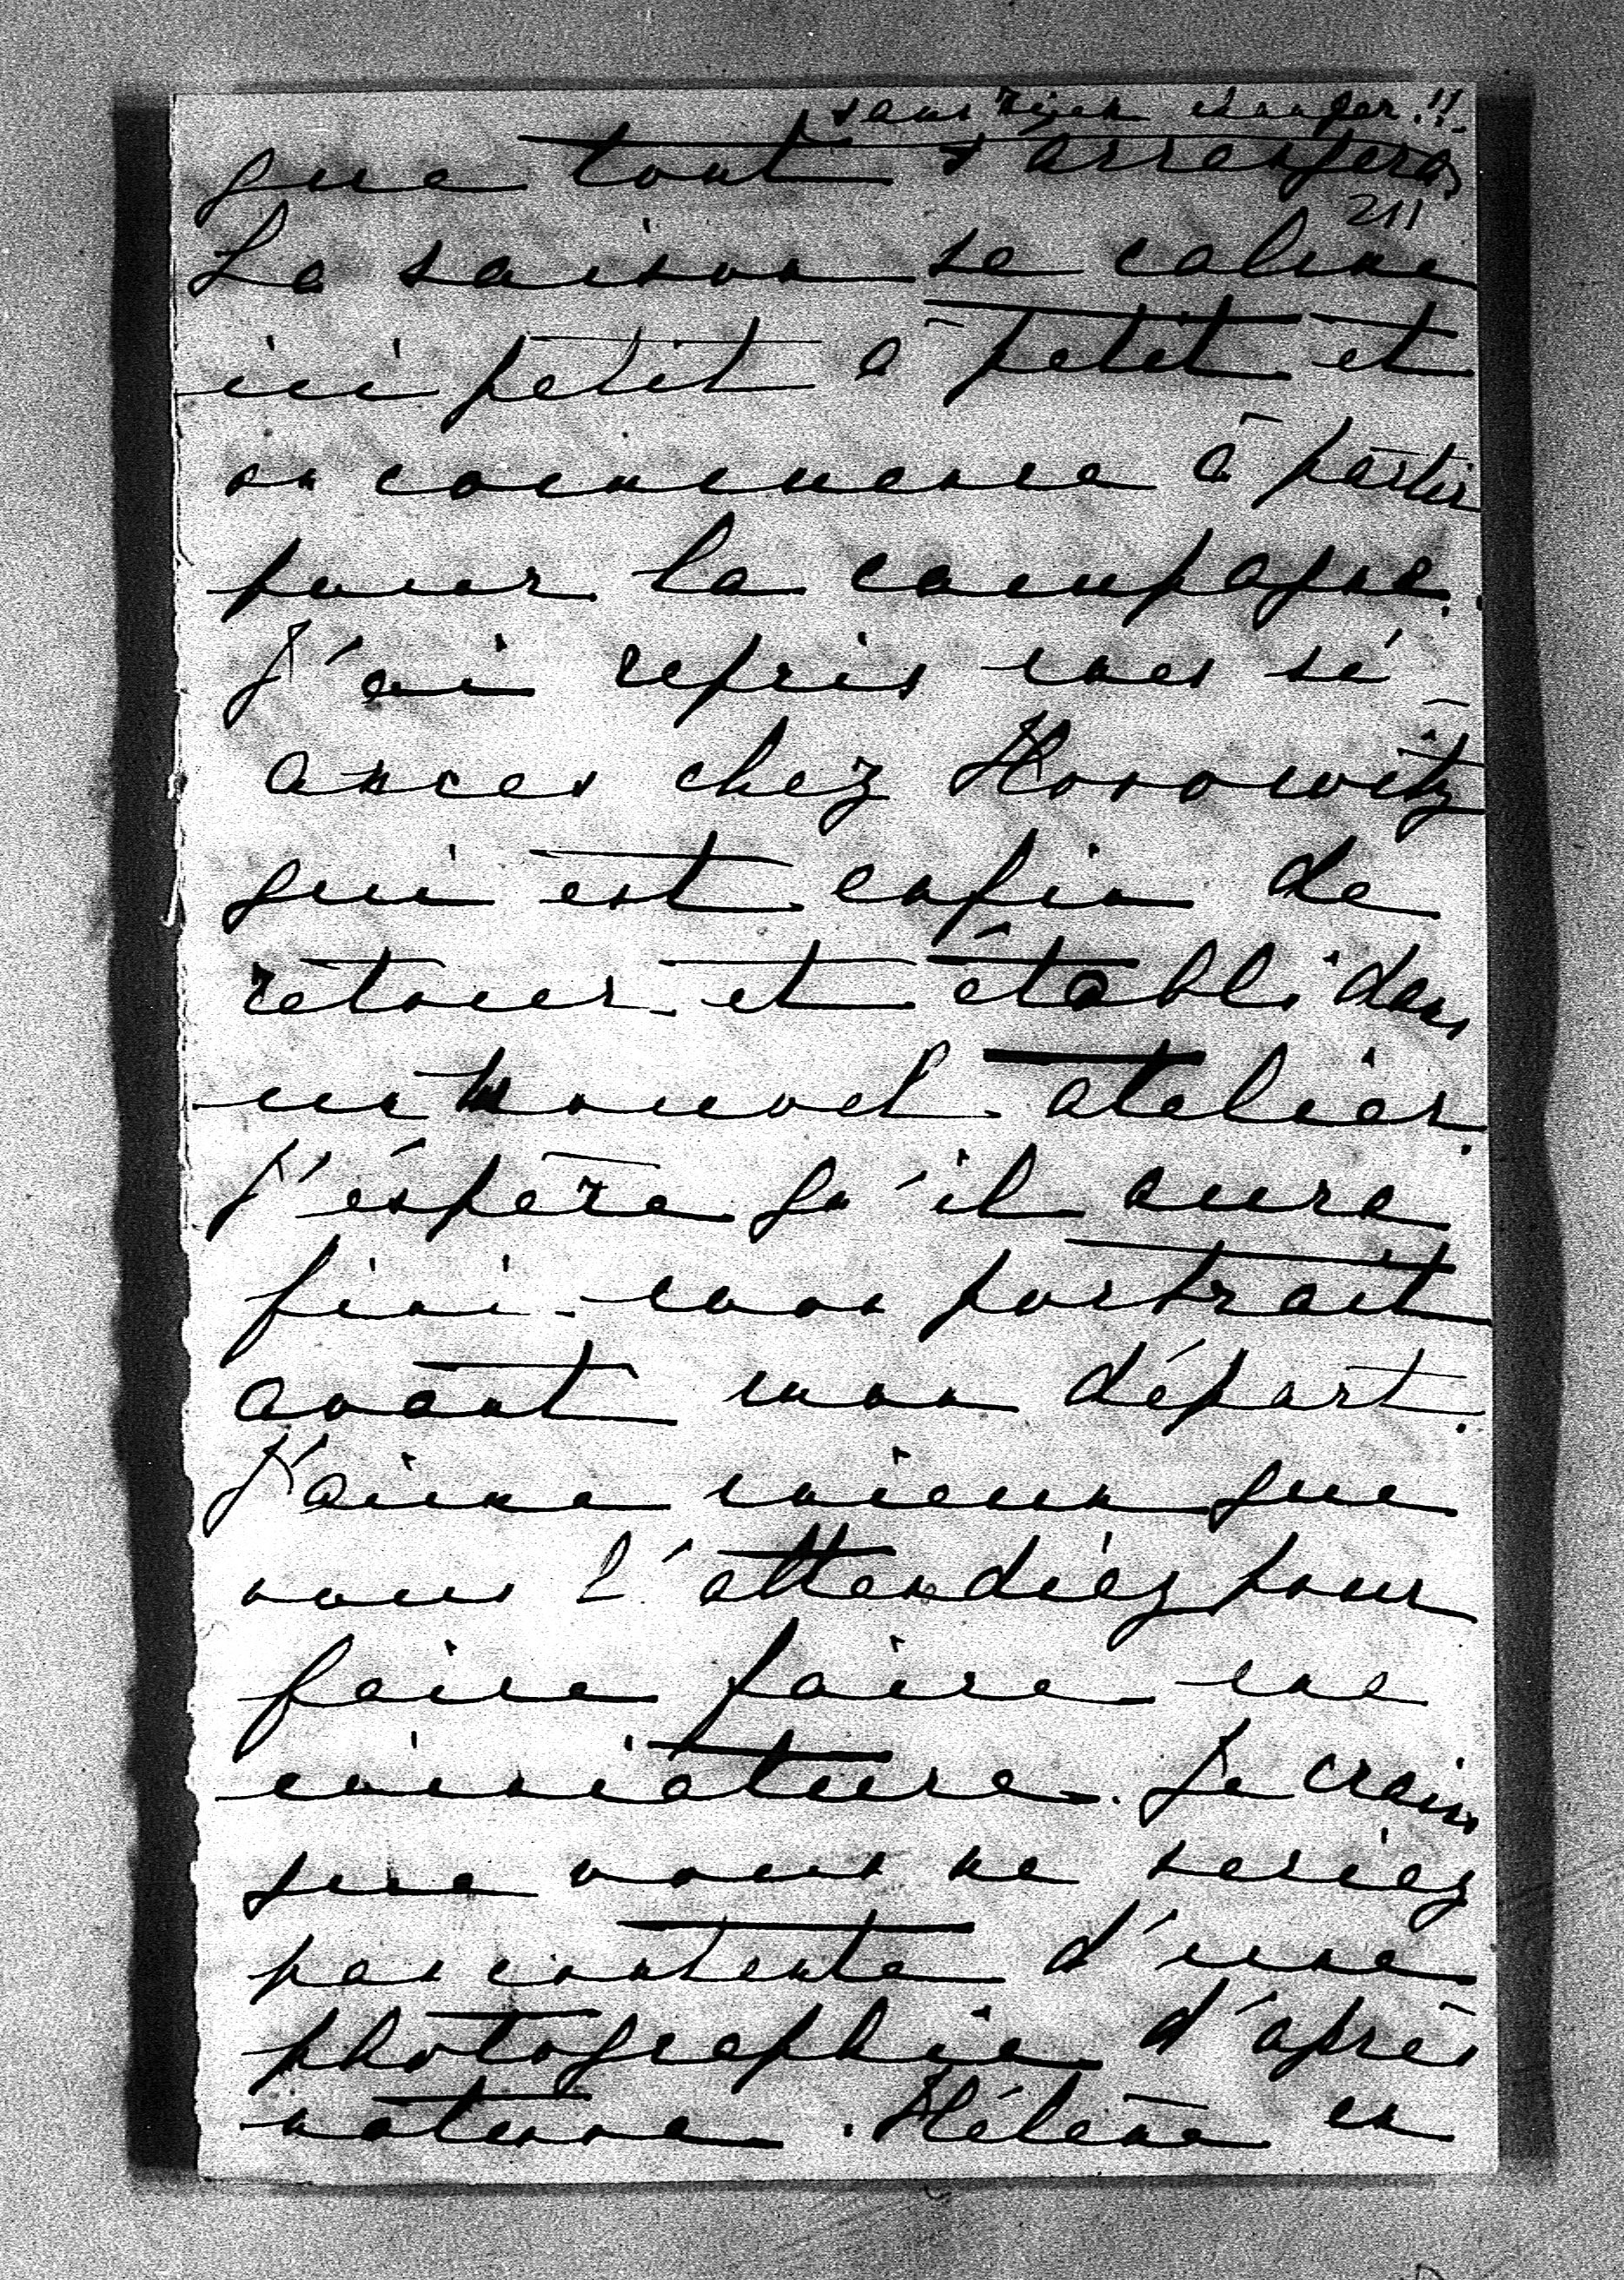 sans rien changer!!
que tout s'arrangera,
211
La saison se calme
ici petit à petit et
on commence à partir
pour la campagne.
J'ai repris mes sé-
ances chez Horowitz
qui est enfin de
retour et établi dans
un nouvel atelier.
J'éspère qu'il aura
fini mon portrait
avant mon départ.
J'aime mieux que
vous l'attendiéz pour
faire faire une
miniature. Je crains
que vous ne seriez
pas contente d'une
photographie d'après
nature. Hélène en